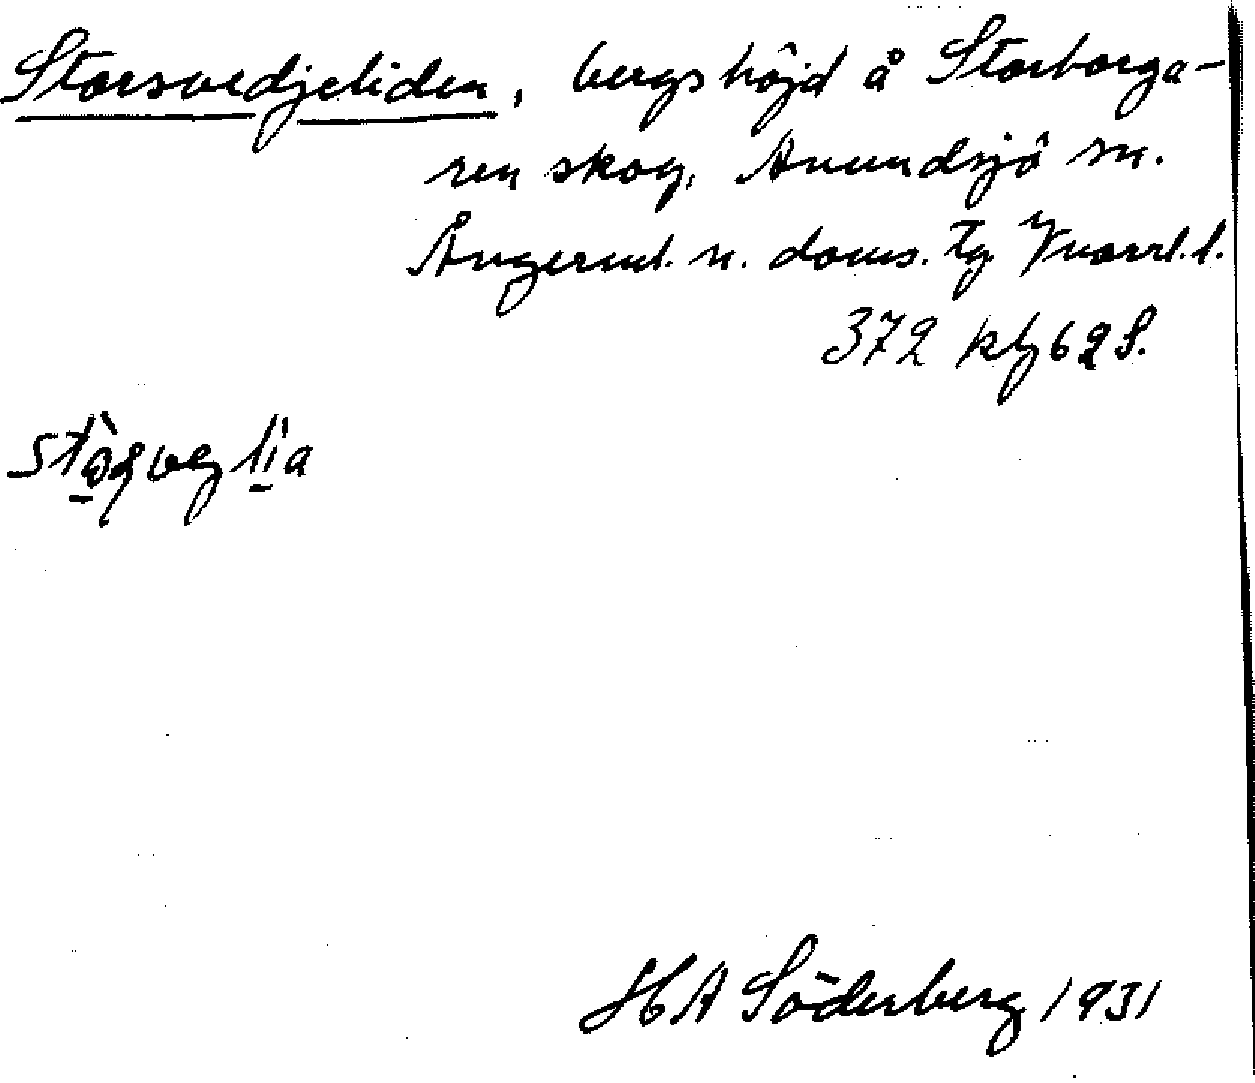 Storsvedjeliden, bergshöjd å Storborga-
ren skog, Anundsjö sn.
Ångerml. n. doms. Tg Vnorrl. l.
372 kbl 62 S.
HA Söderberg 1931